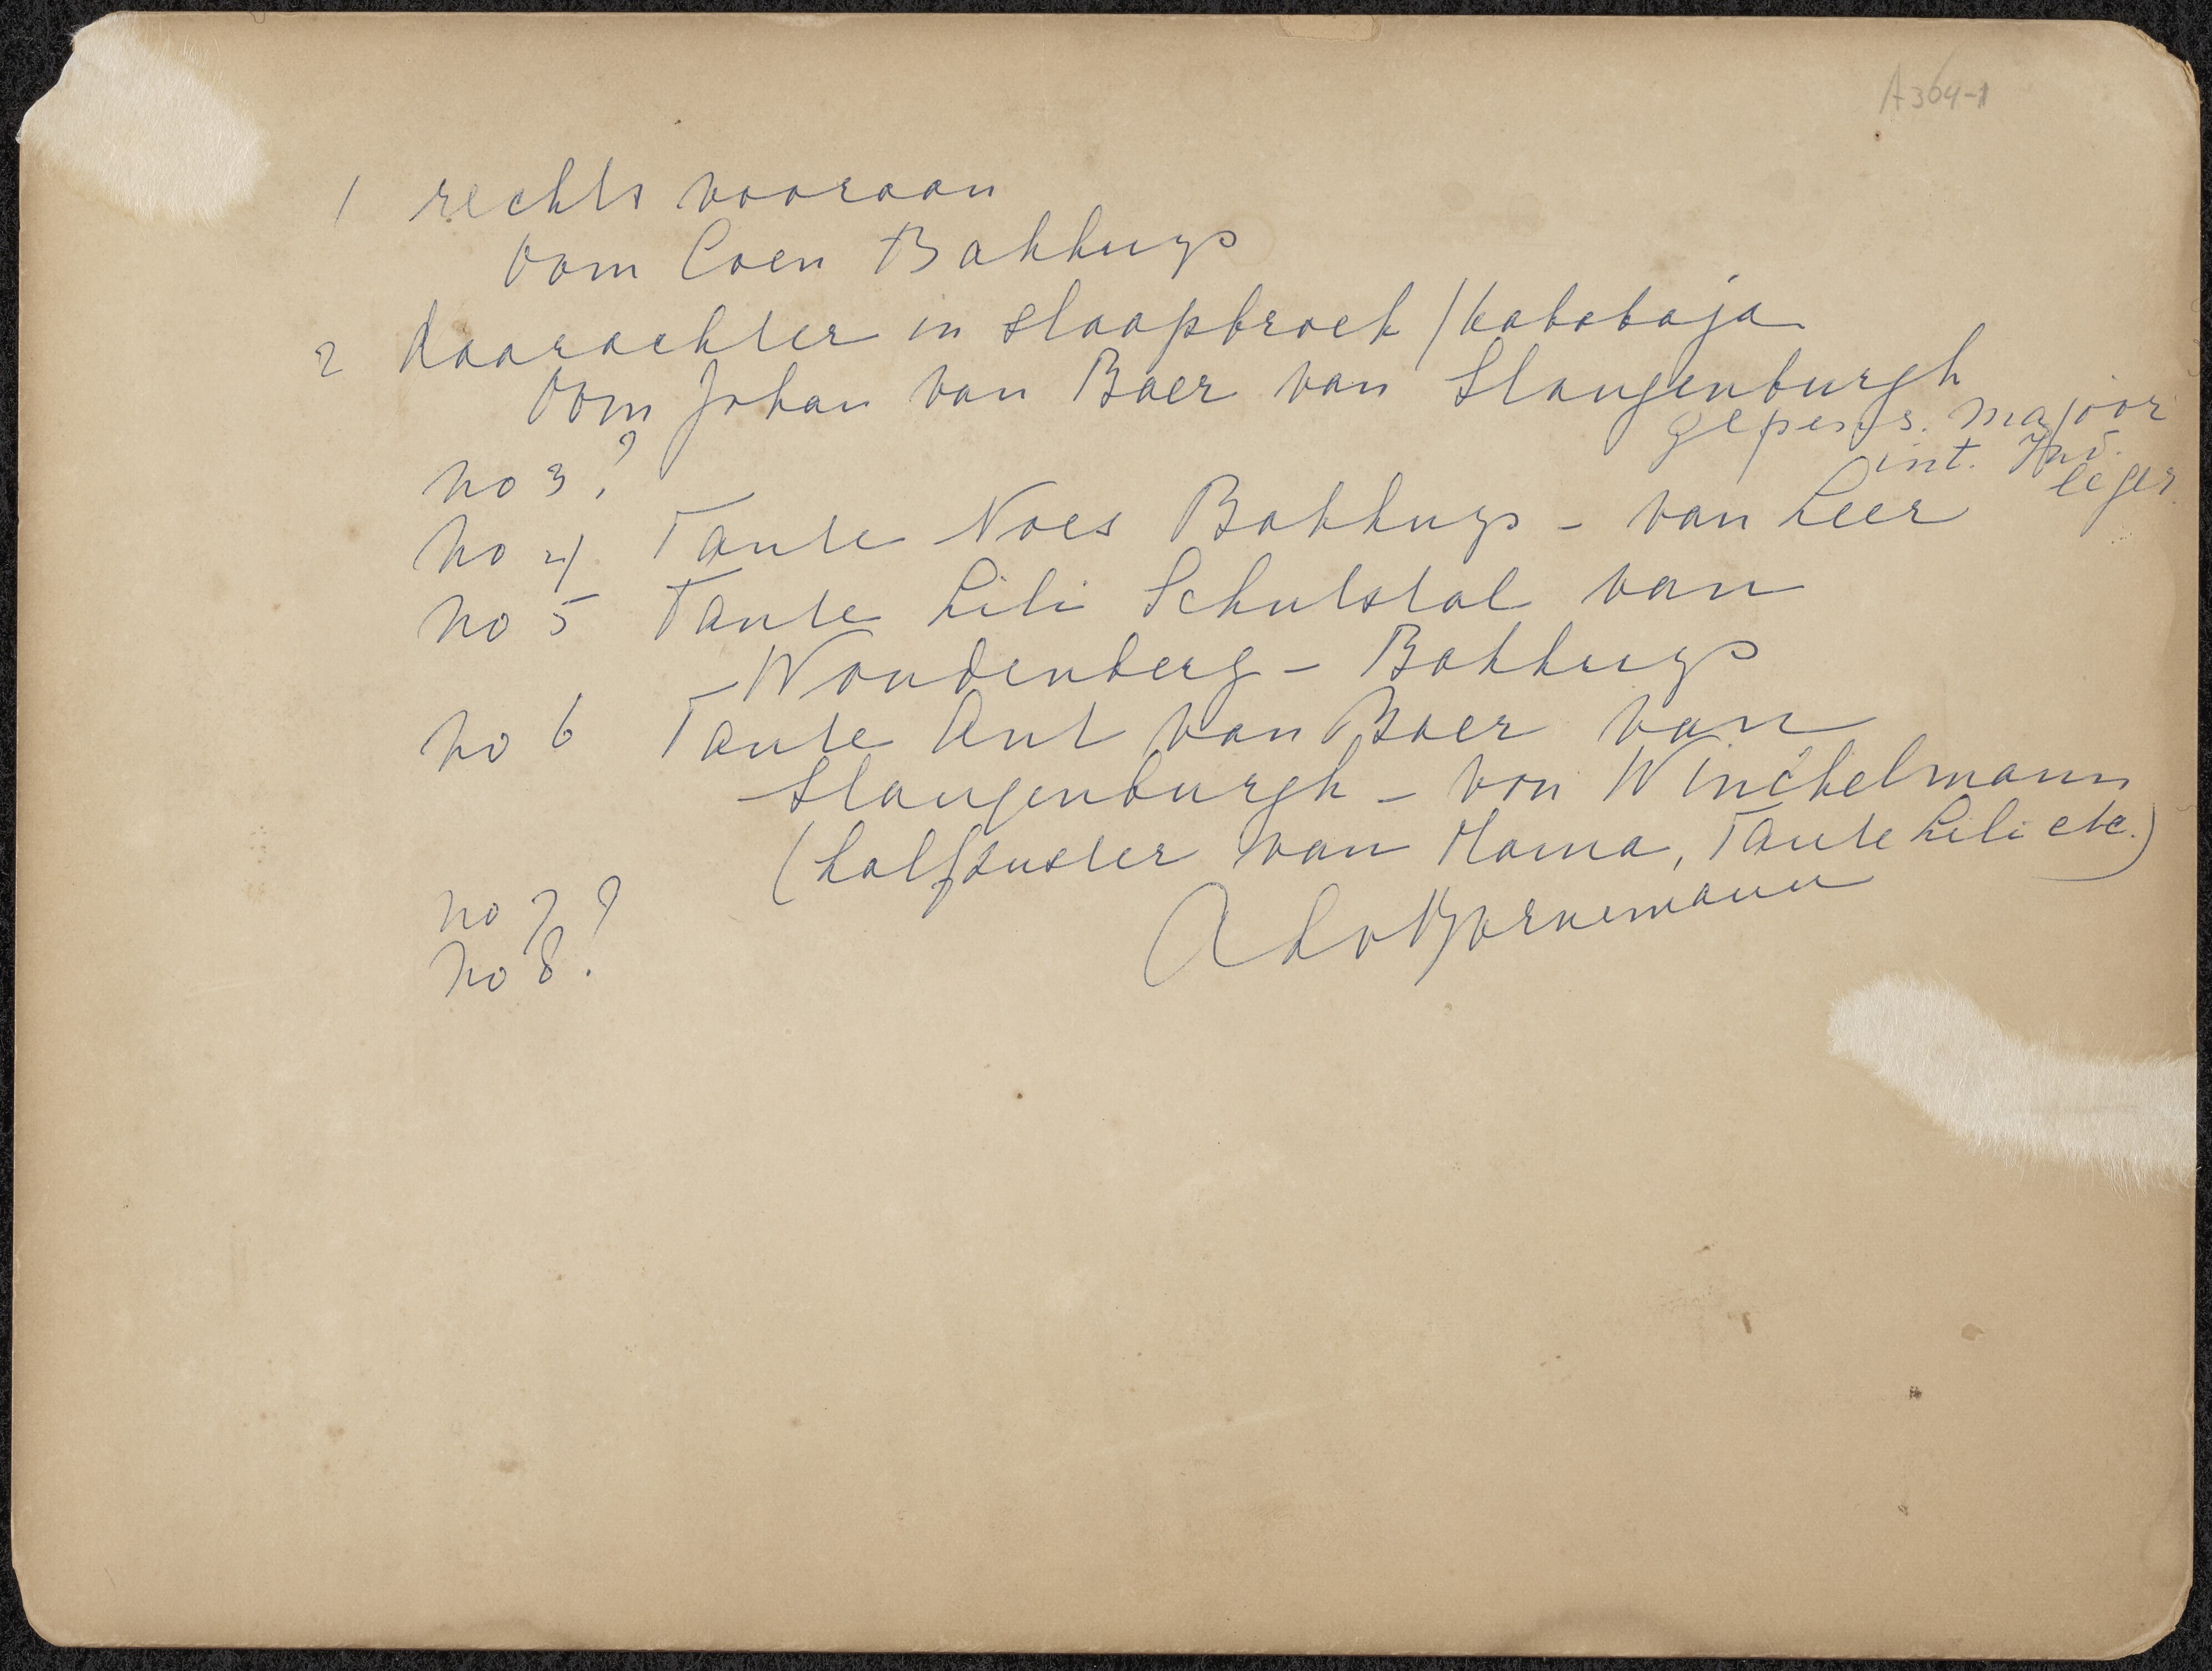 A364-1
1 rechts vooraan
Oom Coen Bakhuys
2 daarachter in slaapbroek / kababaja
Oom Johan van Baer van Slangenburgh
gepens. majoor
int. Ind.
leger
no 3 ?
no 4 Tante Noes Bakhuys - van Leer
no 5 Tante Lili Schutstal van
Woudenberg - Bakhuys
no 6 Tante Ant van Baer van
Slangenburgh - von Winckelmann
(halfzuster van Mama, Tante Lili etc.)
no 7 ?
no 8 ?